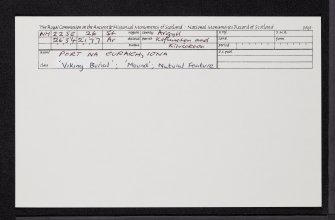 The Royal Commission on the Ancient & Historical Monuments of Scotland : National Monuments Record of Scotland
NM 22 SE 26 St region county Argyll
2634 2177 Ar district parish Kilfinichen and
Kilvickeon
name PORT NA CURAICH, IONA
class 'Viking Burial'; 'Mound'; Natural Feature